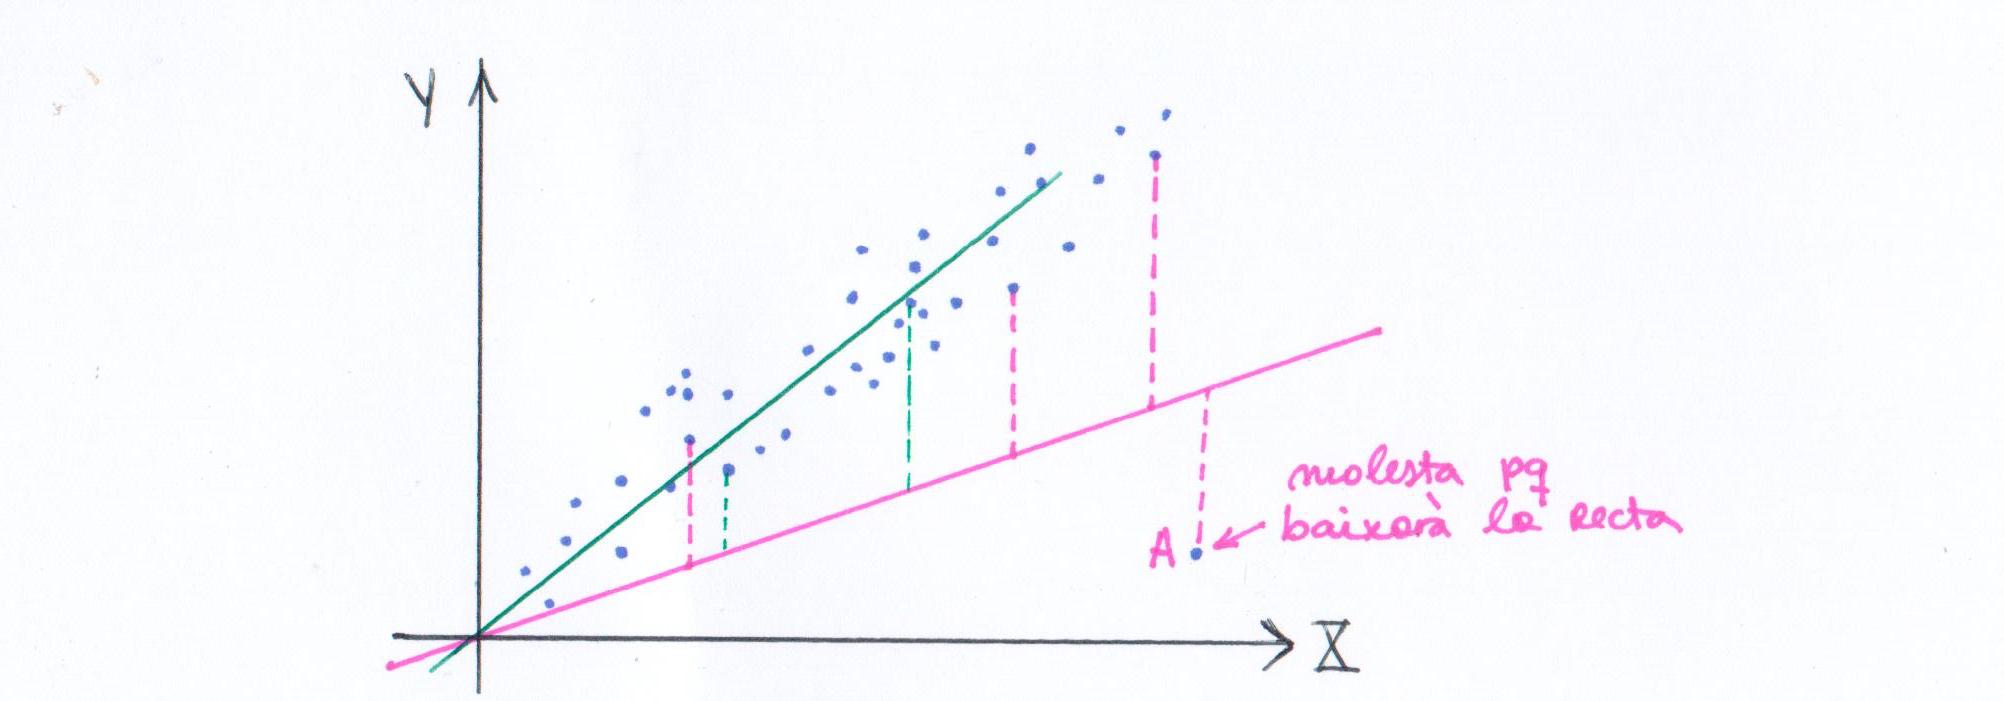 Y
molesta pq
baixarà la recta
A
X